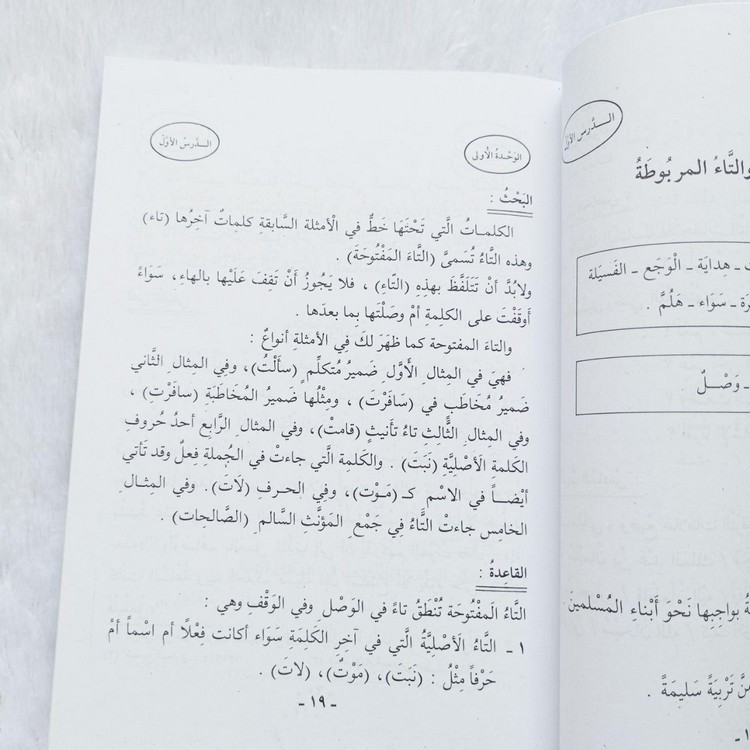 الوَحْدةُ الأولى
الــدَّرسُ الأوَّلُ
البَحْثُ :
الكلمـاتُ الَّتي تَحْتَهَا خَطٌّ في الْأمثلة السَّابقةِ كلماتٌ آخِرُها (تاء)
وهذه التَّاءُ تُسَمىَّ (التَّاءَ المَفْتُوحَةَ) .
ولابُدَّ أنْ تَتَلَفَّظَ بهذِهِ (التَّاءِ) ، فلا يَجُوزُ أنْ تَقِفَ عَلَيْها بالهاءِ، سَوَاءٌ
أَوَقَفْتَ على الكلِمةِ أمْ وصَلْتَها بِما بعدَها .
والتاءَ المفتوحة كما ظهَرَ لكَ فِي الأمثلةِ أنواعٌ :
فهيَ في المِثالِ الأوَّلِ ضَميرُ مُتكلِّمٍ (سألْتُ)، وفي المِثالِ الثَّاني
ضَميرُ مُخاطَبٍ في (سَافرْتَ) ، ومِثْلُها ضَميرُ المُخَاطَبَةِ (سافَرْتِ) ،
وفي المِثالِ الثَّالثِ تاءُ تأنيثٍ (قامتْ)، وفي المثالِ الرَّابِعِ أحدُ حُروفِ
الكَلمةِ الأصْليَّةِ (نَبَتَ) . والكَلمة الَّتي جاءتْ في الجُملةِ فِعلٌ وقد تَأتي
أيْضـاً في الاسْمِ كـ (مَوْت) ، وفي الحرفِ (لَاتَ) . وفي المِثالِ
الخامِسِ جاءتْ التَّاءُ فِي جَمْعِ المَؤنَّثِ السَّالمِ (الصَّالحات) .
القاعِدةُ :
التَّاءُ المَفْتُوحَة تُنْطَقُ تاءً في الوَصْلِ وفي الوَقْفِ وهي :
١ ـ التَّاءُ الأَصْليَّةُ الَّتي في آخِرِ الكَلِمَةِ سَوَاء أكانت فِعْلاً أم اسْماً أمْ
حَرْفاً مِثْلُ : (نَبَتَ)، (مَوْتٌ)، (لاتَ) .
- ١٩ -
الــدَّرسُ الأوَّلُ
والتَّاءُ المربُوطَةُ
ـ هِدايَة ـ الْوَجَع ـ الفَسيَلة
ـ سَوَاء ـ هَلُمَّ .
ـ وَصْــلٌ
بواجِبِها نَحْوَ أبْناءِ المُسْلمينَ
تَرْبِيَةً سَليمَةً .